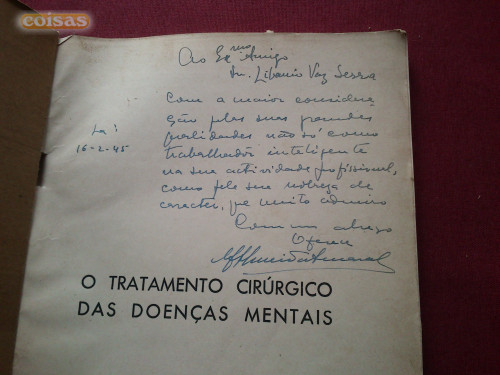 coisas
Ao Ex mo Amigo
Dr. Libanio Vaz Serra
Com a maior considera
ção pelas suas grandes
qualidades não só como
trabalhador inteligente
na sua actividade profissional,
como pela sua nobreza de
caracter, que muito admiro
Com um abraço
Oferece
16-2-45
O TRATAMENTO CIRÚRGICO
DAS DOENÇAS MENTAIS